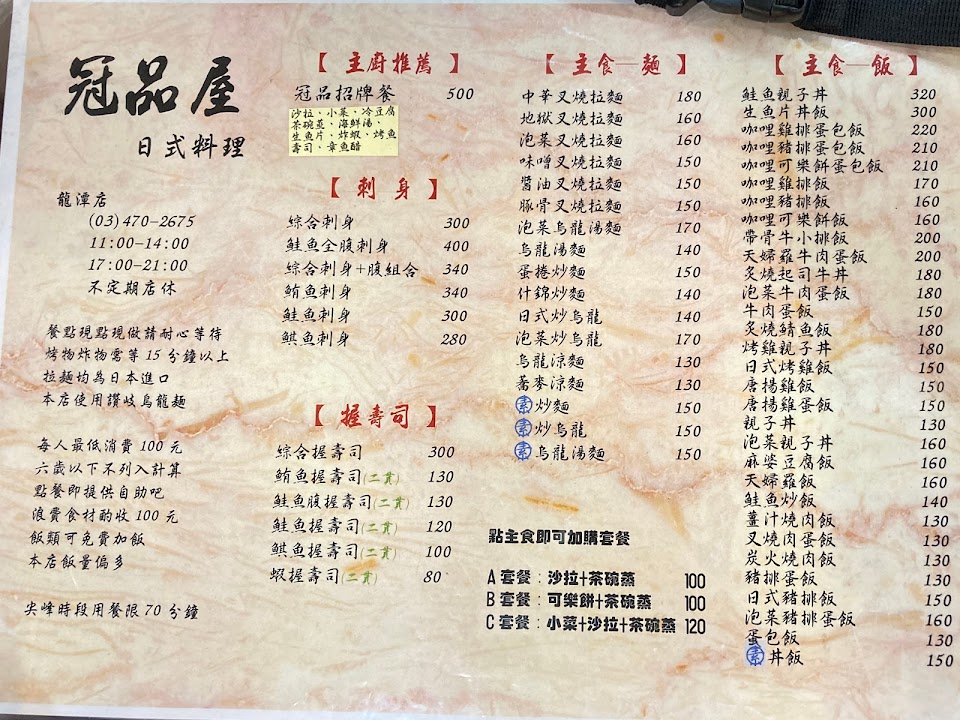 冠品屋
日式料理
龍潭店
(03)470-2675
11:00-14:00
17:00-21:00
不定期店休
餐點現點現做請耐心等待
烤物炸物需等15分鐘以上
拉麵均為日本進口
本店使用讚岐烏龍麵
每人最低消費100元
六歲以下不列入計算
點餐即提供自助吧
浪費食材酌收100元
飯類可免費加飯
本店飯量偏多
尖峰時段用餐限70分鐘
【主廚推薦】
冠品招牌餐 500
沙拉、小菜、冷豆腐
茶碗蒸、海鮮湯、
生魚片、炸蝦、烤魚
壽司、章魚醋
【刺身】
綜合刺身 300
鮭魚全腹刺身 400
綜合刺身+腹組合 340
鮪魚刺身 340
鮭魚刺身 300
鯕魚刺身 280
【握壽司】
綜合握壽司 300
鮪魚握壽司(二貫) 130
鮭魚腹握壽司(二貫) 130
鮭魚握壽司(二貫) 120
鯕魚握壽司(二貫) 100
蝦握壽司(二貫) 80
【主食─麵】
中華叉燒拉麵 180
地獄叉燒拉麵 160
泡菜叉燒拉麵 160
味噌叉燒拉麵 150
醬油叉燒拉麵 150
豚骨叉燒拉麵 150
泡菜烏龍湯麵 170
烏龍湯麵 140
蛋捲炒麵 150
什錦炒麵 140
日式炒烏龍 140
泡菜炒烏龍 170
烏龍涼麵 130
蕎麥涼麵 130
素炒麵 150
素炒烏龍 150
素烏龍湯麵 150
點主食即可加購套餐
A套餐:沙拉+茶碗蒸 100
B套餐:可樂餅+茶碗蒸 100
C套餐:小菜+沙拉+茶碗蒸 120
【主食─飯】
鮭魚親子丼 320
生魚片丼飯 300
咖哩雞排蛋包飯 220
咖哩豬排蛋包飯 210
咖哩可樂餅蛋包飯 210
咖哩雞排飯 170
咖哩豬排飯 160
咖哩可樂餅飯 160
帶骨牛小排飯 200
天婦羅牛肉蛋飯 200
炙燒起司牛丼 180
泡菜牛肉蛋飯 180
牛肉蛋飯 150
炙燒鯖魚飯 180
烤雞親子丼 180
日式烤雞飯 150
唐揚雞飯 150
唐揚雞蛋飯 150
親子丼 130
泡菜親子丼 160
麻婆豆腐飯 160
天婦羅飯 160
鮭魚炒飯 140
薑汁燒肉飯 130
叉燒肉蛋飯 130
炭火燒肉飯 130
豬排蛋飯 130
日式豬排飯 150
泡菜豬排蛋飯 160
蛋包飯 130
素丼飯 150